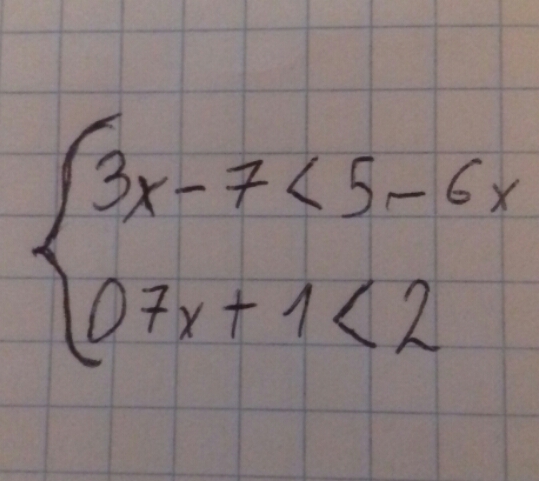 3x - 7 < 5 - 6x
07x + 1 < 2